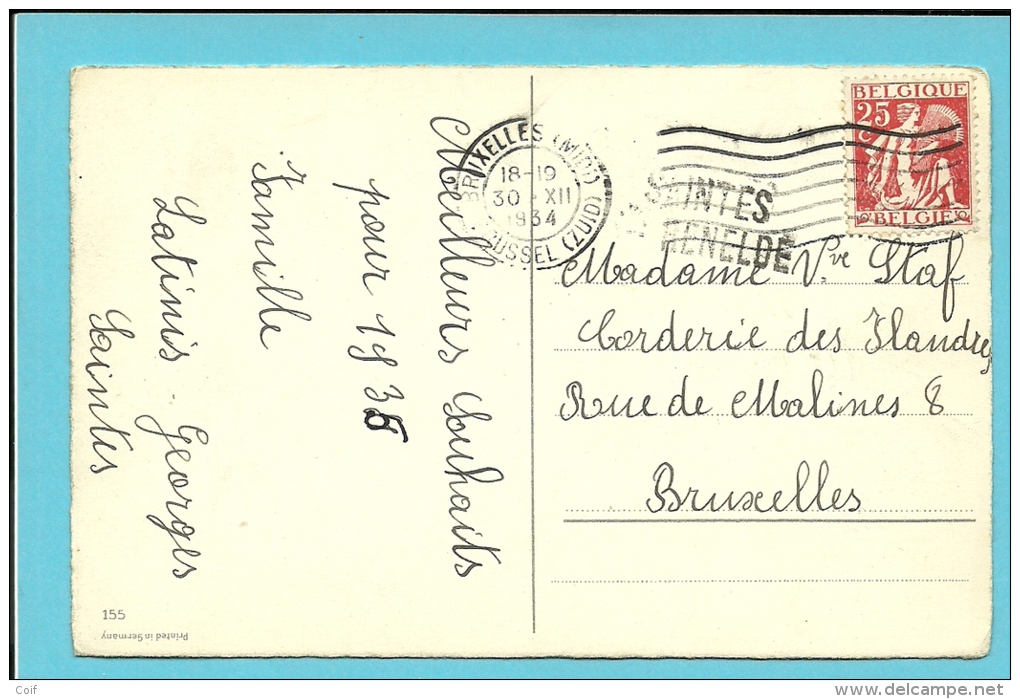 BELGIQUE
25
BELGIE
BRUXELLES (MIDI)
18-19
30 XII
1934
BRUSSEL (ZUID)
SAINTES
RENELDE
Meilleurs Souhaits
pour 1935
Famille
Latinis Georges
Saintes
Madame Vve Staf
Corderie des Flandres
Rue de Malines 8
Bruxelles
155
Printed in Germany
Coif
www.delcampe.net